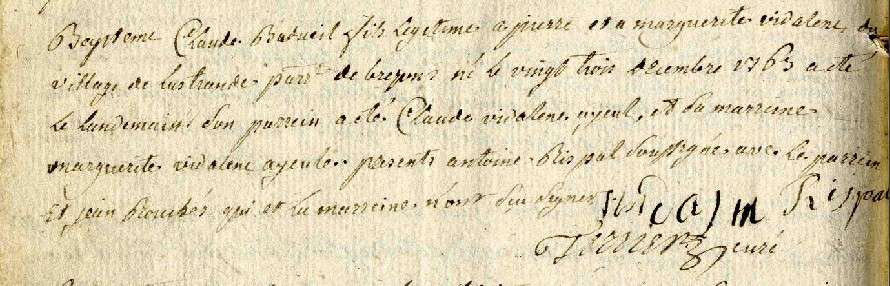 Bapteme Claude Badueil fils legitime a pierre et a marguerite vidalenc du
village de lustrande parss de brezons né le vingt trois decembre 1763 a eté
le landemain son parrein a eté Claude vidalenc ayeul, et sa marreine
marguerite vidalenc ayeule presents antoine Rispal soussigné avec le parrein
Et jean Rouchés qui et la marreine n'ont sçu signer Rispal
curé